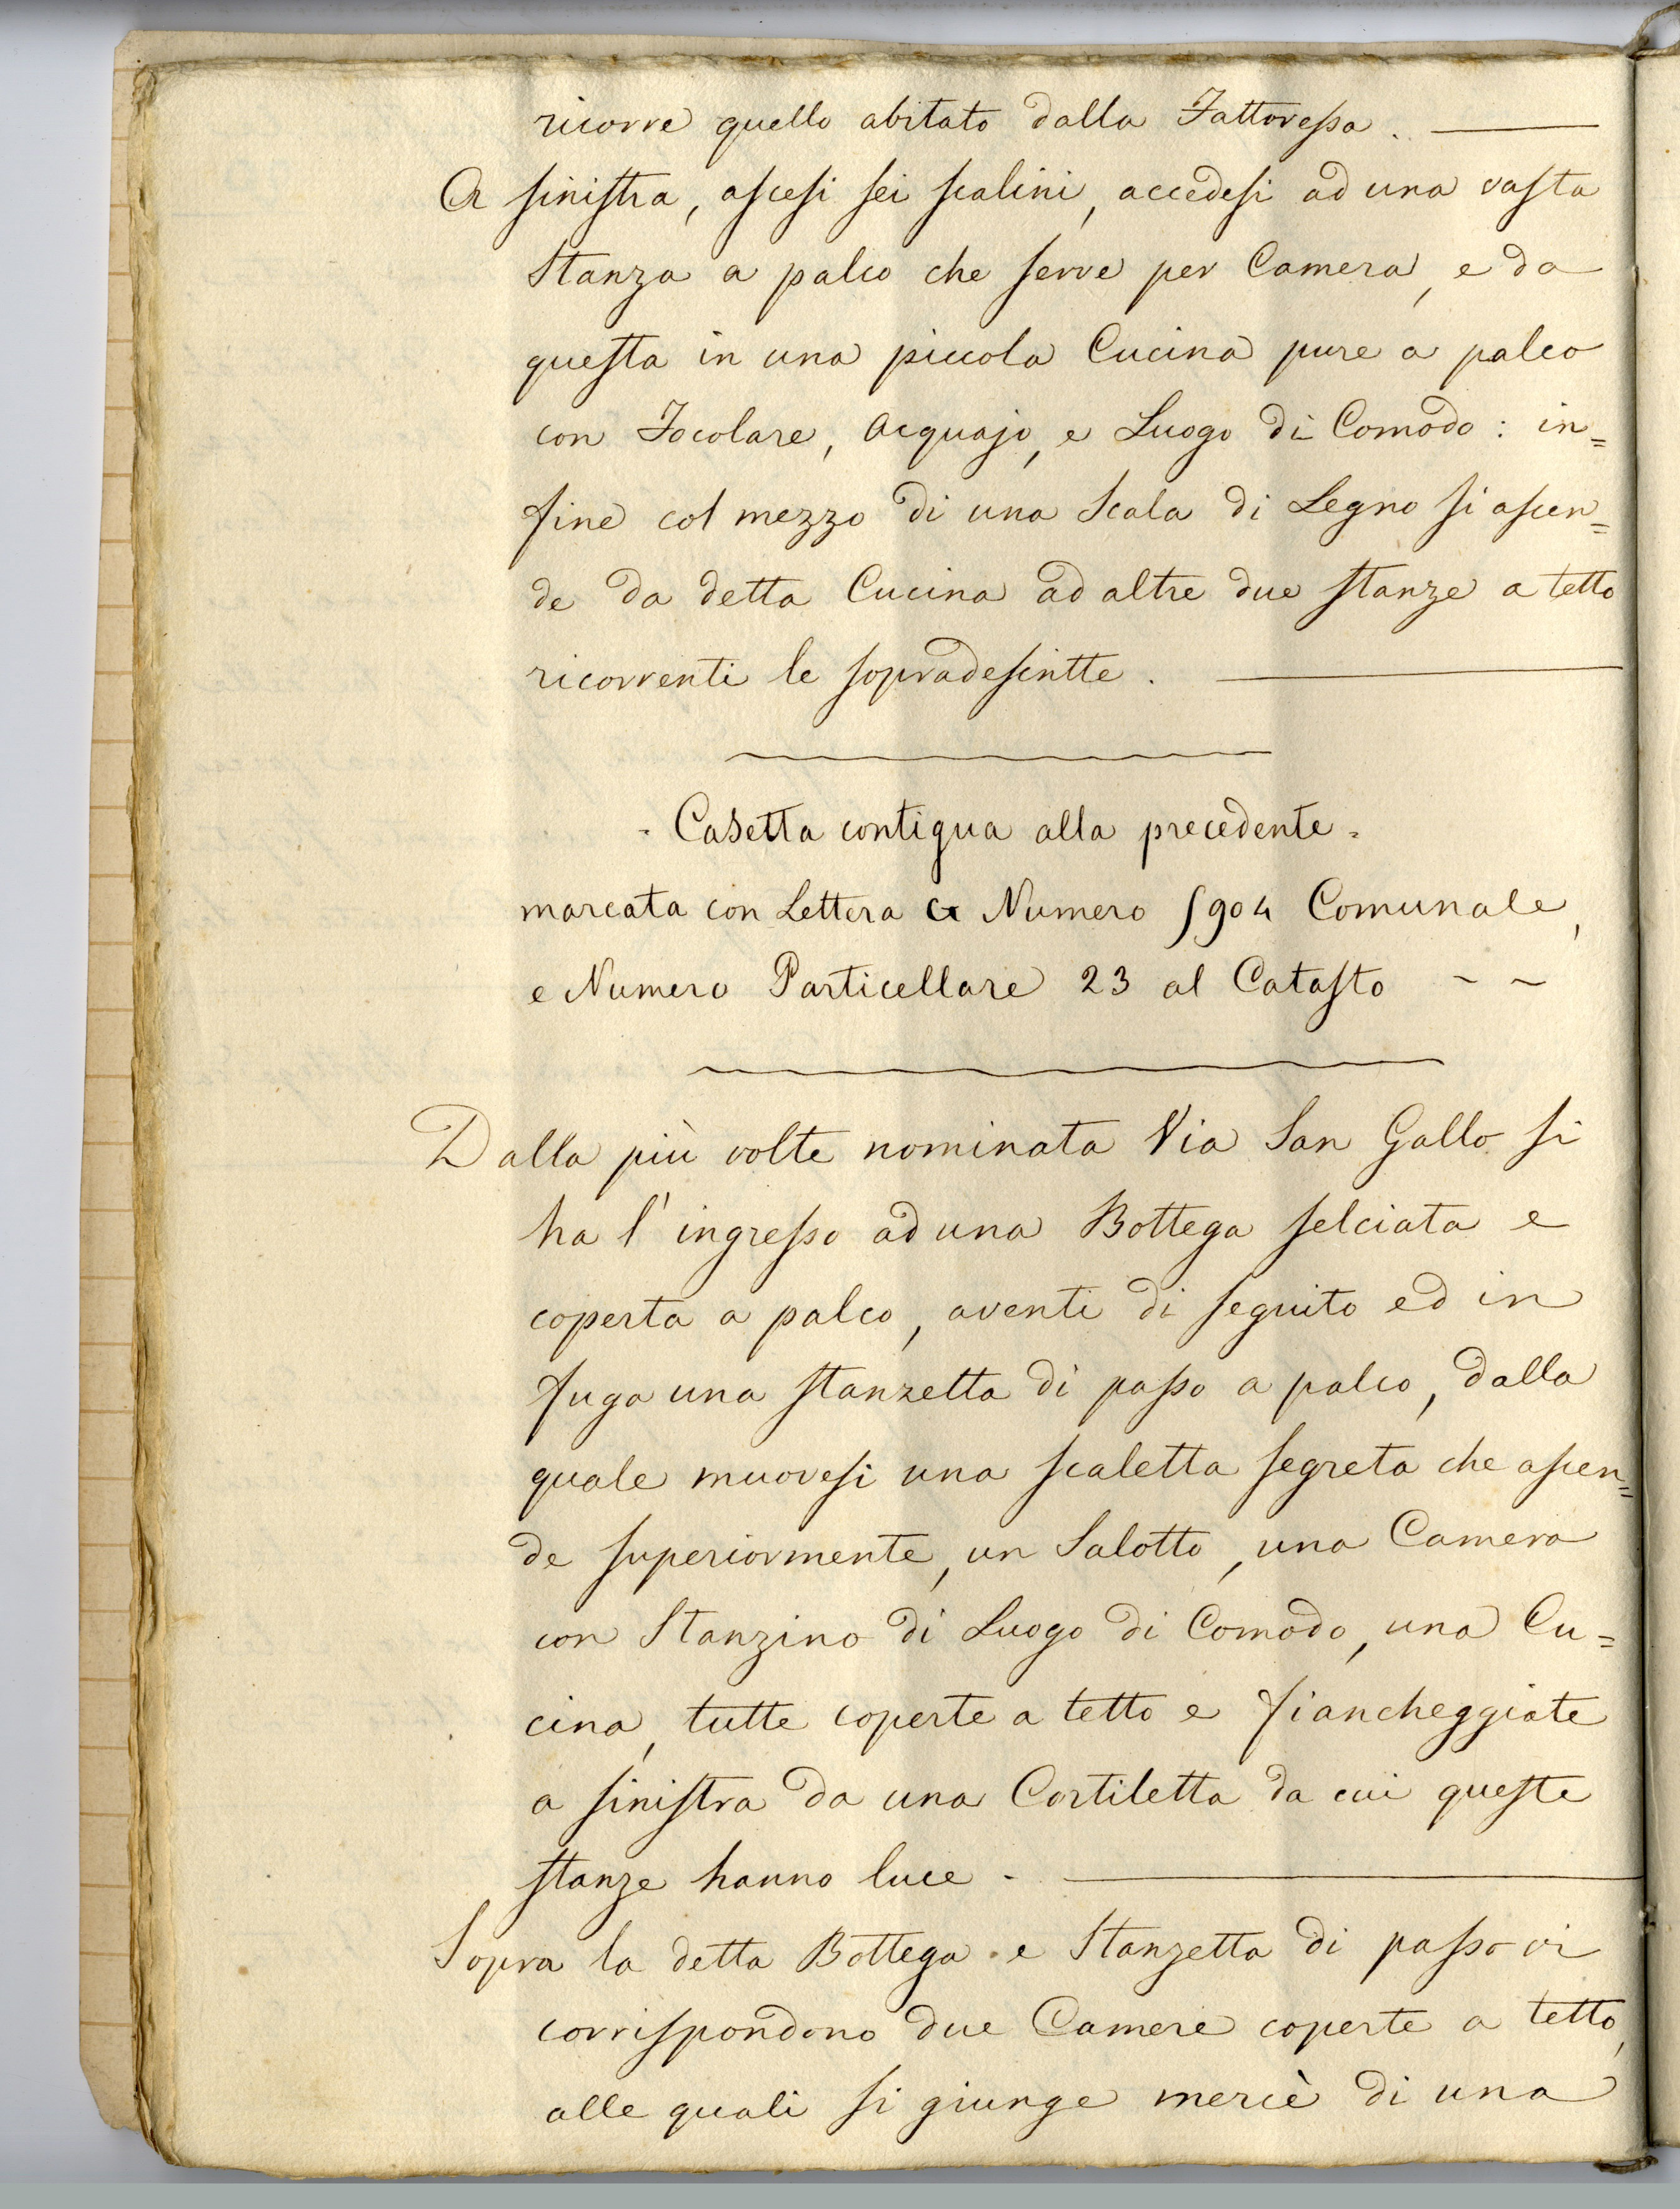 ricorre quello abitato dalla Fattoressa.
A sinistra, ascesi sei scalini, accedesi ad una vasta
Stanza a palco che serve per Camera, e da
questa in una piccola Cucina pure a palco
con Focolare, Acquajo, e Luogo di Comodo: in=
fine col mezzo di una Scala di Legno si ascen=
de da detta Cucina ad altre due stanze a tetto
ricorrenti le sopradescritte.
Casetta contigua alla precedente.
marcata con Lettera G Numero 5904 Comunale,
e Numero Particellare 23 al Catasto ~ ~
Dalla più volte nominata Via San Gallo si
ha l'ingresso ad una Bottega selciata e
coperta a palco, aventi di seguito ed in
fuga una stanzetta di passo a palco, dalla
quale muovesi una scaletta segreta che ascen=
de superiormente, un Salotto, una Camera
con Stanzino di Luogo di Comodo, una Cu=
cina, tutte coperte a tetto e fiancheggiate
a sinistra da una Cortiletta da cui queste
stanze hanno luce.
Sopra la detta Bottega e Stanzetta di passo vi
corrispondono due Camere coperte a tetto,
alle quali si giunge mercè di una